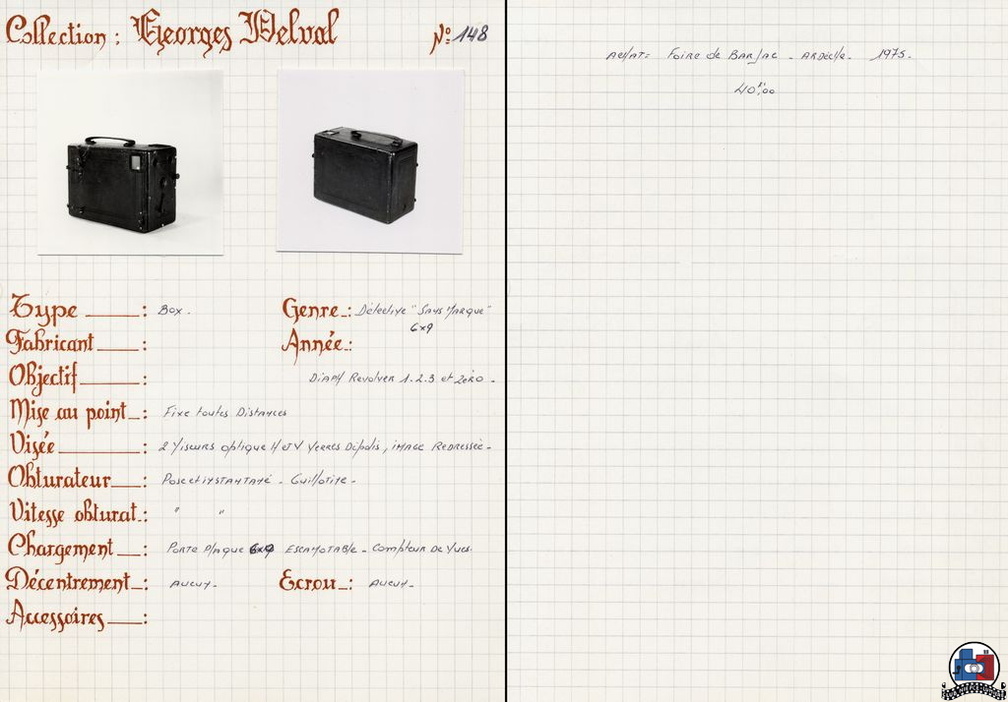 Collection : Georges Delval Nº 148
Type : Box.
Genre : Détective "Sans Marque"
6x9
Fabricant :
Année :
Objectif : Diaph Revolver 1.2.3 et zéro.
Mise au point : Fixe toutes Distances
Visée : 2 Viseurs optique H et V Verres Dépolis, image Redressée.
Obturateur : Pose et instantané - Guillotine.
Vitesse obturat. : " "
Chargement : Porte Plaque 6x9 Escamotable - Compteur de Vues.
Décentrement : Aucun.
Ecrou : Aucun.
Accessoires :
Achat : Foire de Barjac - Ardèche - 1975.